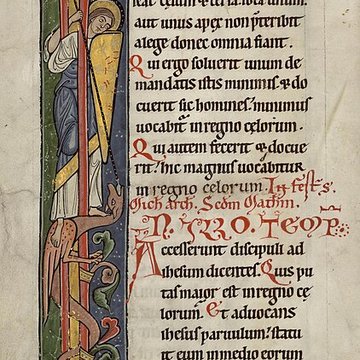 eat celum & terra. iota unum.
aut unus apex non pteribit
a lege donec omnia fiant.
Qui ergo soluerit unum de
mandatis istis minimis. & do
cuerit sic homines. minimus
uocabit in regno celorum.
Qui autem fecerit & docue
rit. hic magnus uocabitur
in regno celorum. In fest. s.
Mich Arch. Scdm Mathm.
IN ILLO TEMPR.
Accesserunt discipuli ad
ihesum dicentes. Quis pu
tas maior est in regno ce
lorum. Et aduocans
ihesus paruulum. statu
it eum in medio eorum